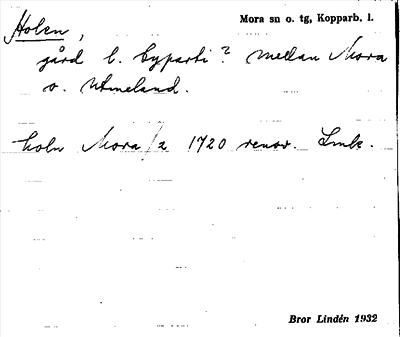 Holen,
Mora sn o. tg, Kopparb. l.
gård l. byparti? mellan Mora
o. Utmeland.
holn Mora/2 1720 renov. Lmk.
Bror Lindén 1932